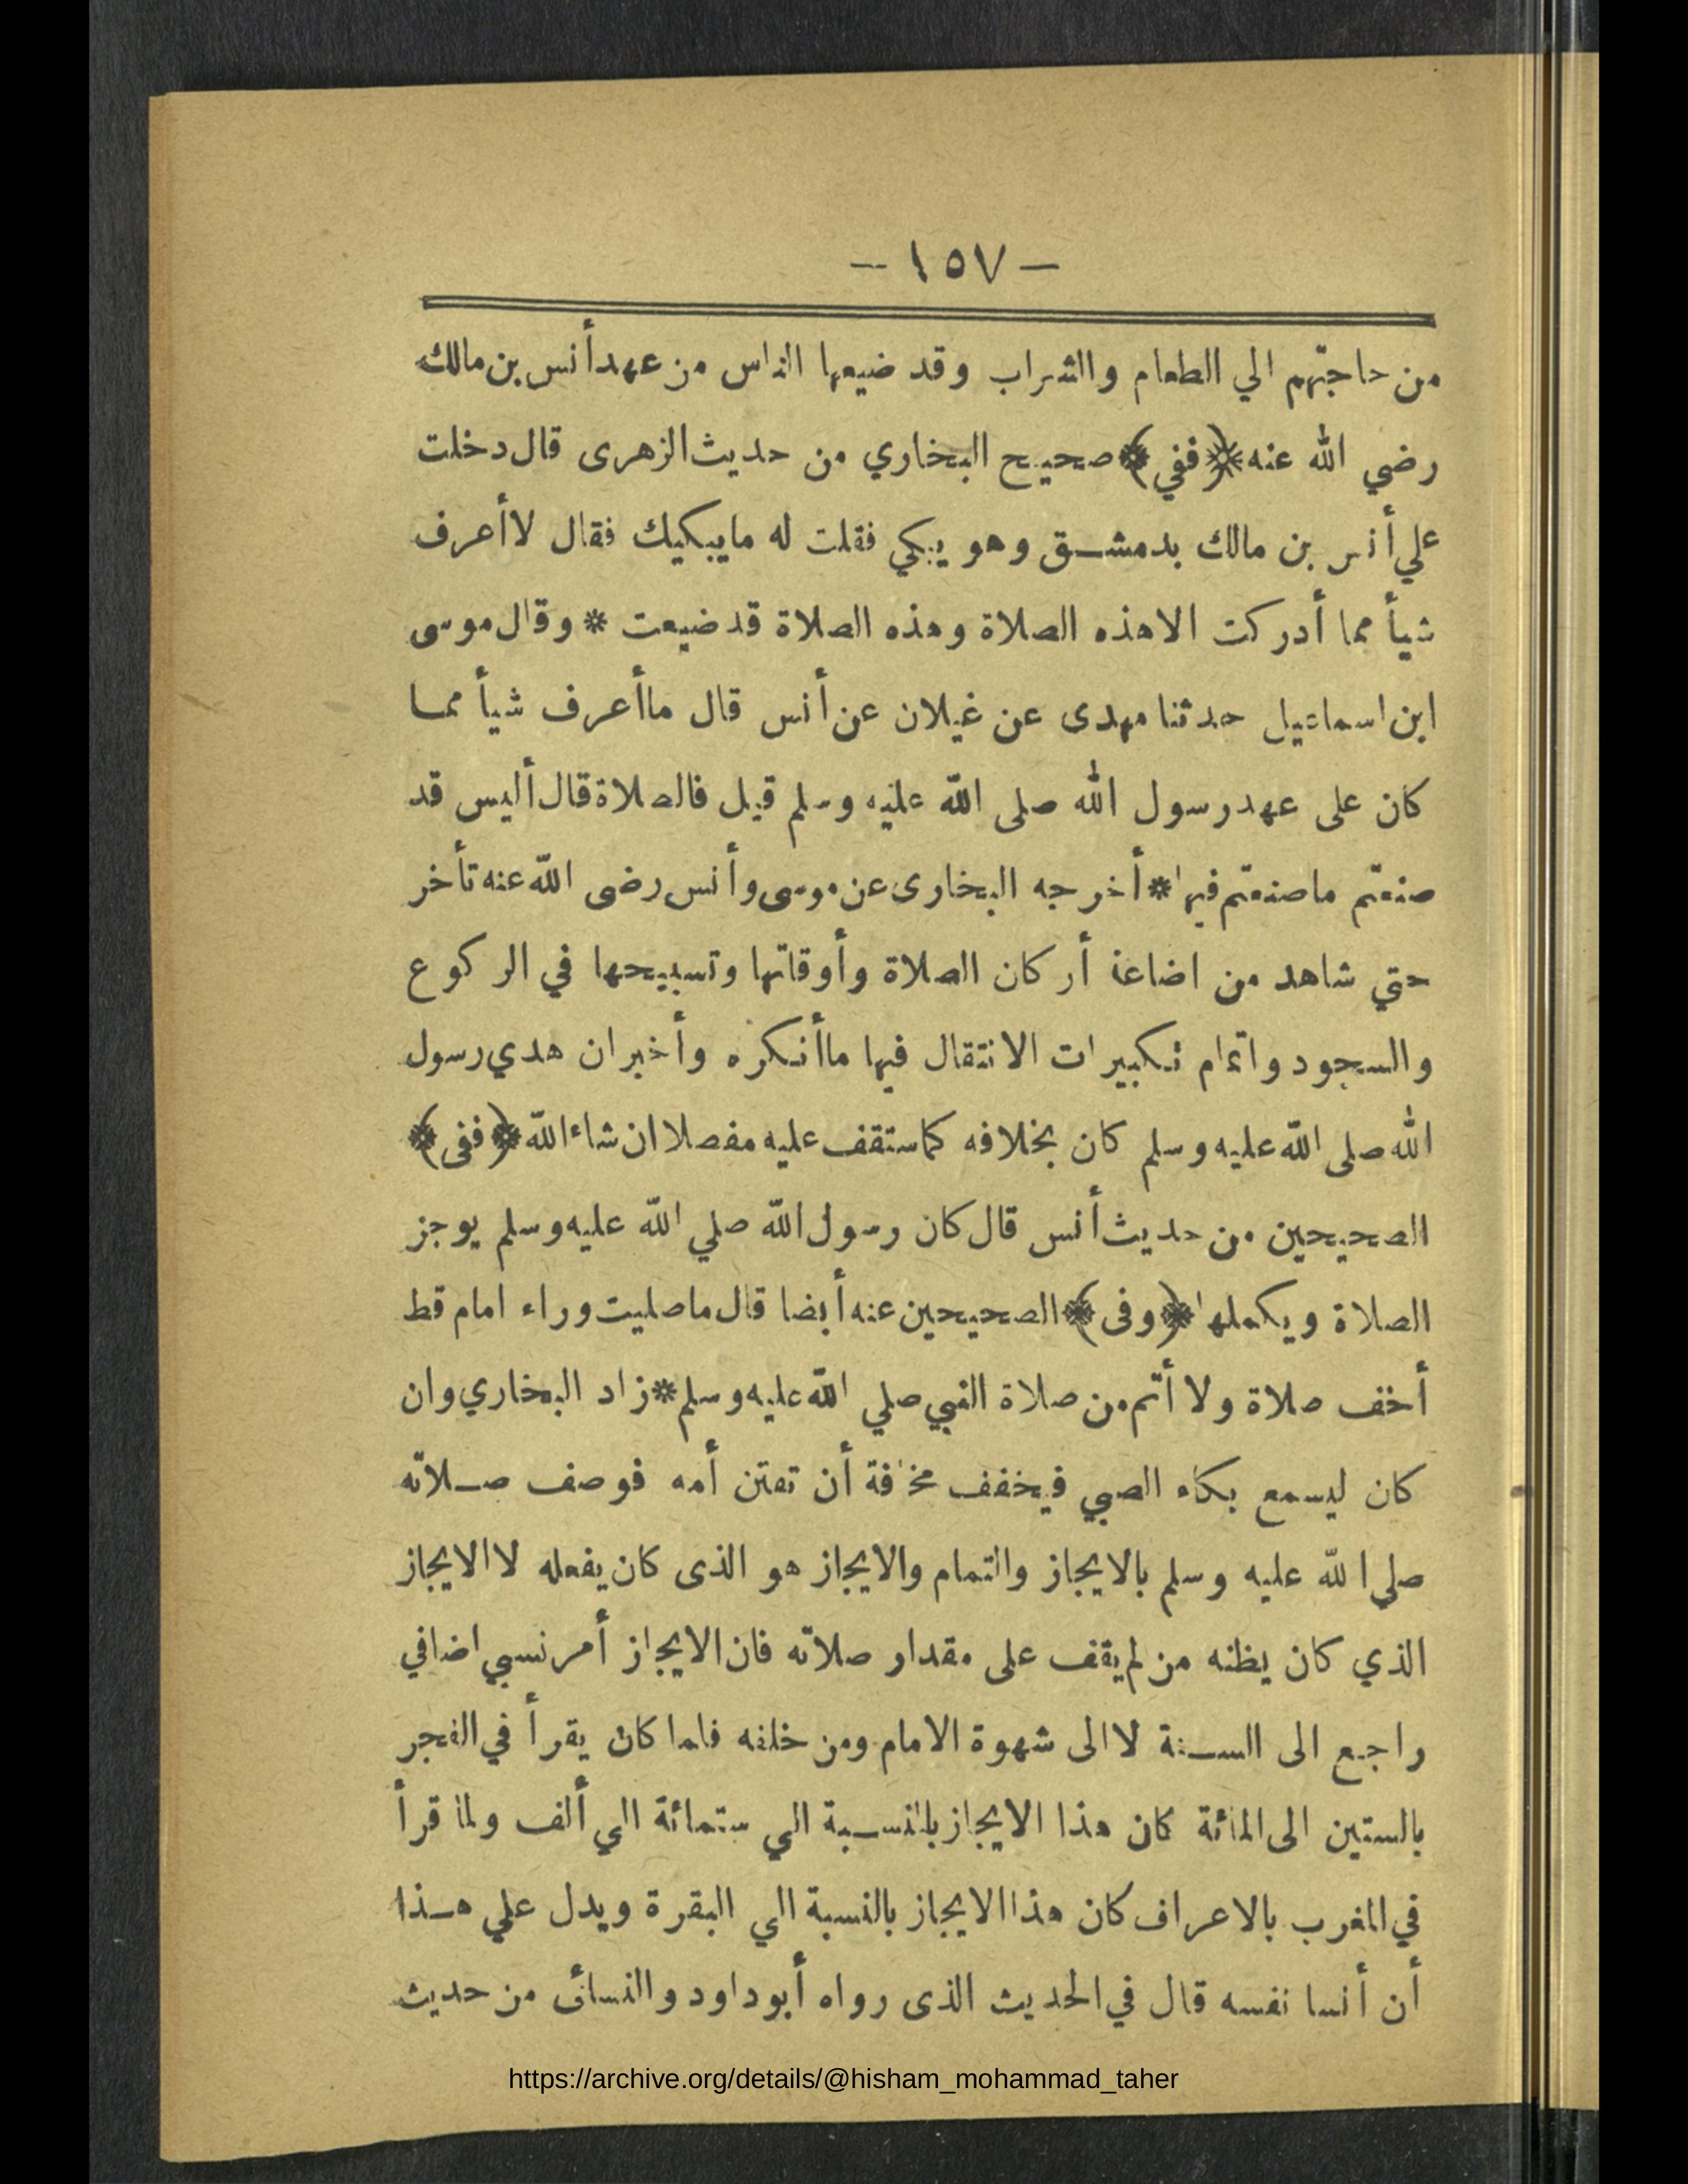 — ١٥٧ —
من حاجتهم الي الطعام والشراب وقد ضيعها الناس من عهد أنس بن مالك
رضي الله عنه ﴿ففي﴾ صحيح البخاري من حديث الزهرى قال دخلت
علي أنس بن مالك بدمشق وهو يبكي فقلت له مايبكيك فقال لا أعرف
شيأ مما أدركت الا هذه الصلاة وهذه الصلاة قد ضيعت * وقال موسى
ابن اسماعيل حدثنا مهدى عن غيلان عن أنس قال ما أعرف شيأ مما
كان على عهد رسول الله صلى الله عليه وسلم قيل فالصلاة قال أليس قد
صنعتم ما صنعتم فيها * أخرجه البخارى عن موسى وأنس رضى الله عنه تأخر
حتي شاهد من اضاعة أركان الصلاة وأوقاتها وتسبيحها في الركوع
والسجود واتمام تكبيرات الانتقال فيها ما أنكره وأخبر ان هدي رسول
الله صلى الله عليه وسلم كان بخلافه كما ستقف عليه مفصلا ان شاء الله ﴿ففى﴾
الصحيحين من حديث أنس قال كان رسول الله صلي الله عليه وسلم يوجز
الصلاة ويكملها ﴿وفى﴾ الصحيحين عنه أيضا قال ما صليت وراء امام قط
أخف صلاة ولا أتم من صلاة النبي صلي الله عليه وسلم * زاد البخاري وان
كان ليسمع بكاء الصبي فيخفف مخافة أن تفتن أمه فوصف صلاته
صلي الله عليه وسلم بالايجاز والتمام والايجاز هو الذى كان يفعله لا الايجاز
الذي كان يظنه من لم يقف على مقدار صلاته فان الايجاز أمر نسبي اضافي
راجع الى السنة لا الى شهوة الامام ومن خلفه فلما كان يقرأ في الفجر
بالستين الى المائة كان هذا الايجاز بالنسبة الي ستمائة الي ألف ولما قرأ
في المغرب بالاعراف كان هذا الايجاز بالنسبة الي البقرة ويدل علي هذا
أن أنسا نفسه قال في الحديث الذى رواه أبو داود والنسائى من حديث
https://archive.org/details/@hisham_mohammad_taher